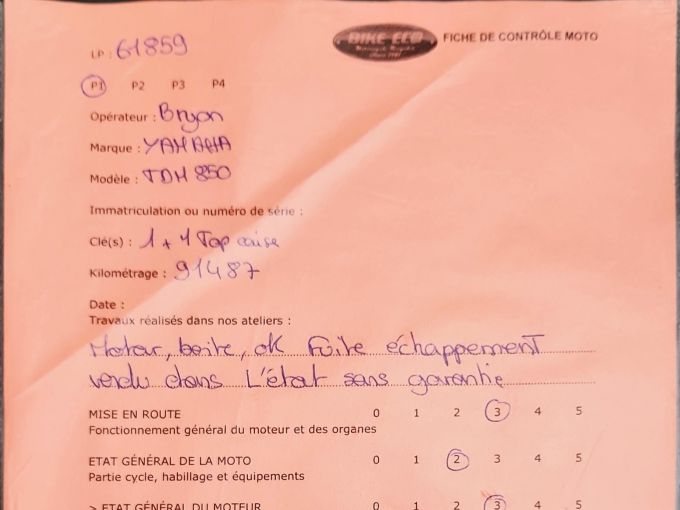 BIKE ECO
FICHE DE CONTRÔLE MOTO
LP : 61859
P1 P2 P3 P4
Opérateur : Bryan
Marque : YAMAHA
Modèle : TDM 850
Immatriculation ou numéro de série :
Clé(s) : 1 + 1 Top caise
Kilométrage : 91487
Date :
Travaux réalisés dans nos ateliers :
Motar, boite, ok Fuite échappement
vendu dans L'état sans garantie
MISE EN ROUTE 0 1 2 3 4 5
Fonctionnement général du moteur et des organes
ETAT GÉNÉRAL DE LA MOTO 0 1 2 3 4 5
Partie cycle, habillage et équipements
> ETAT GÉNÉRAL DU MOTEUR 0 1 2 3 4 5